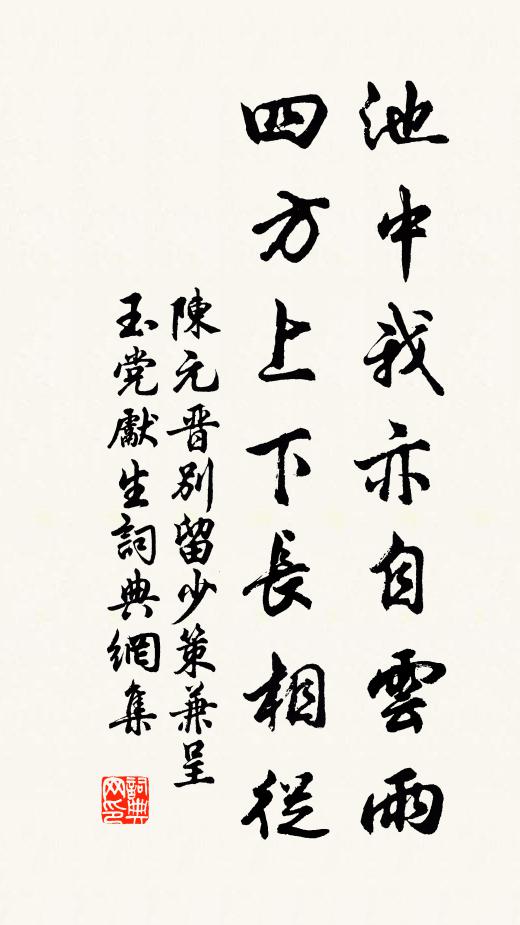 池中我亦自雲雨
四方上下長相從
陳元晋別留少策兼呈
玉党獻生詞典網集
詞典网印